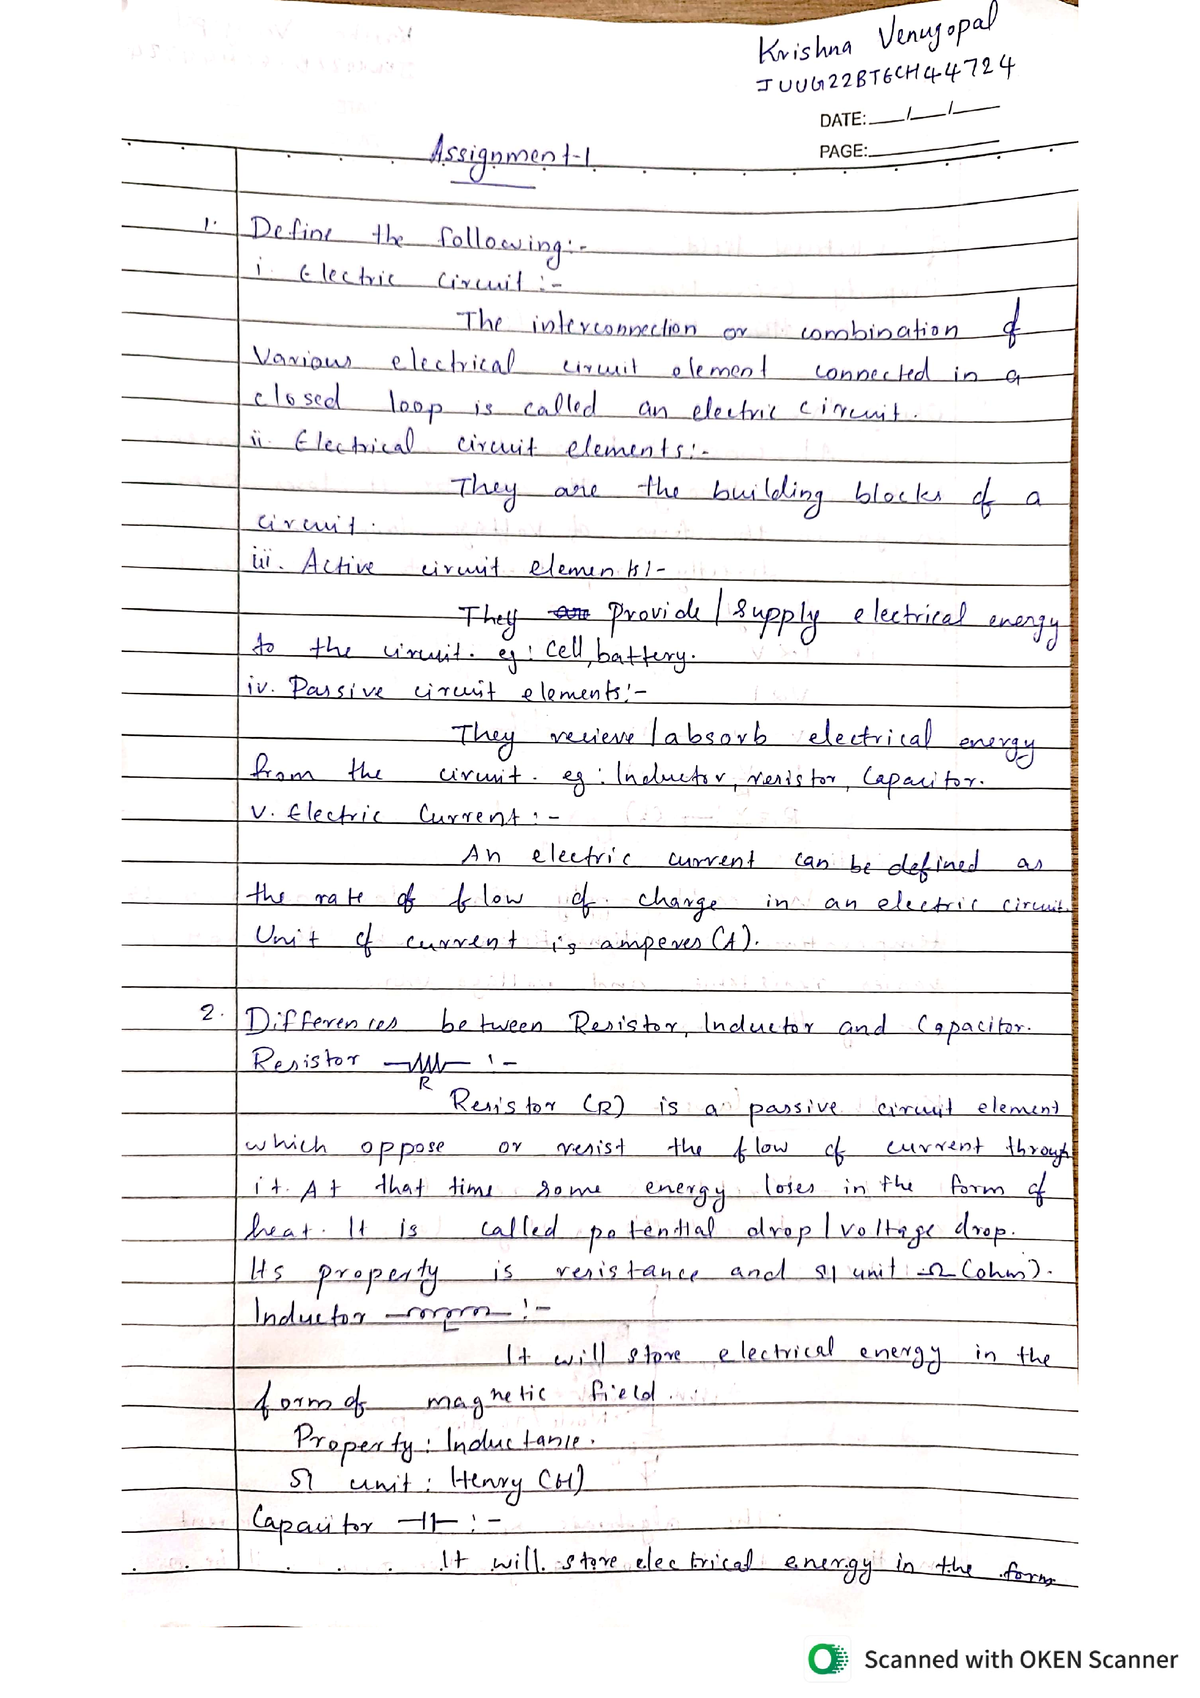 Krishna Venugopal
JUUG22BTECH44724
DATE: / /
PAGE:
Assignment-1
1. Define the following:-
i Electric Circuit :-
The interconnection or combination of
Various electrical circuit element connected in a
closed loop is called an electric circuit.
ii. Electrical circuit elements:-
They are the building blocks of a
circuit.
iii. Active circuit elements:-
They are Provide/supply electrical energy
to the circuit. eg: Cell, battery.
iv. Passive circuit elements:-
They recieve/absorb electrical energy
from the circuit. eg: Inductor, resistor, Capacitor.
V. Electric Current :-
An electric current can be defined as
the rate of flow of charge in an electric circuit.
Unit of current is amperes (A).
2. Differences between Resistor, Inductor and Capacitor.
Resistor :-
R
Resistor (R) is a passive circuit element
which oppose or resist the flow of current through
it. At that time some energy loses in the form of
heat. It is called potential drop/voltage drop.
Its property is resistance and SI unit Ω (ohm).
Inductor :-
L
It will store electrical energy in the
form of magnetic field.
Property: Inductance.
SI unit: Henry (H)
Capacitor :-
It will store electrical energy in the form
Scanned with OKEN Scanner